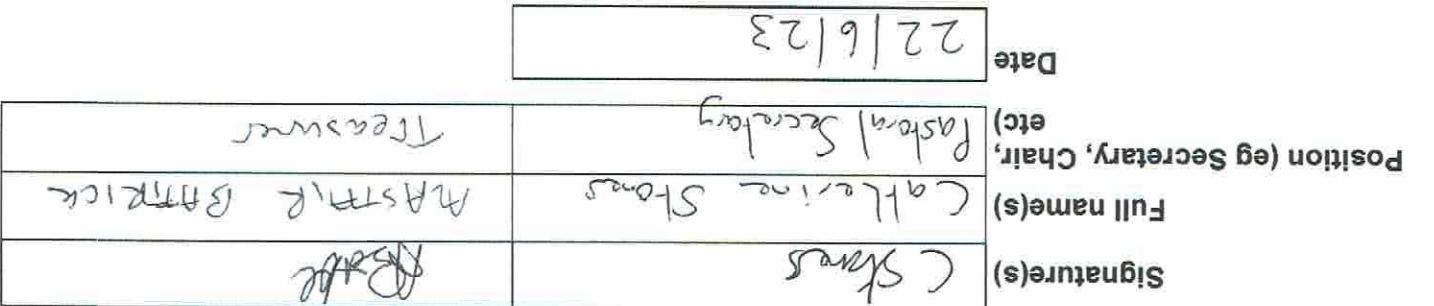 Signature(s) C Stones
Full name(s) Catherine Stones ALASTAIR BATTRICK
Position (eg Secretary, Chair, etc) Pastoral Secretary Treasurer
Date 22/6/23